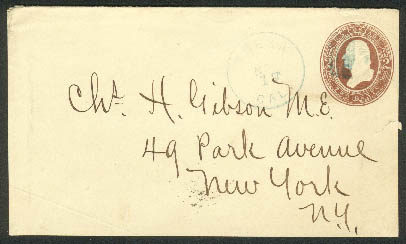 CAL
Chs. H. Gibson M.E.
49 Park Avenue
New York
N.Y.